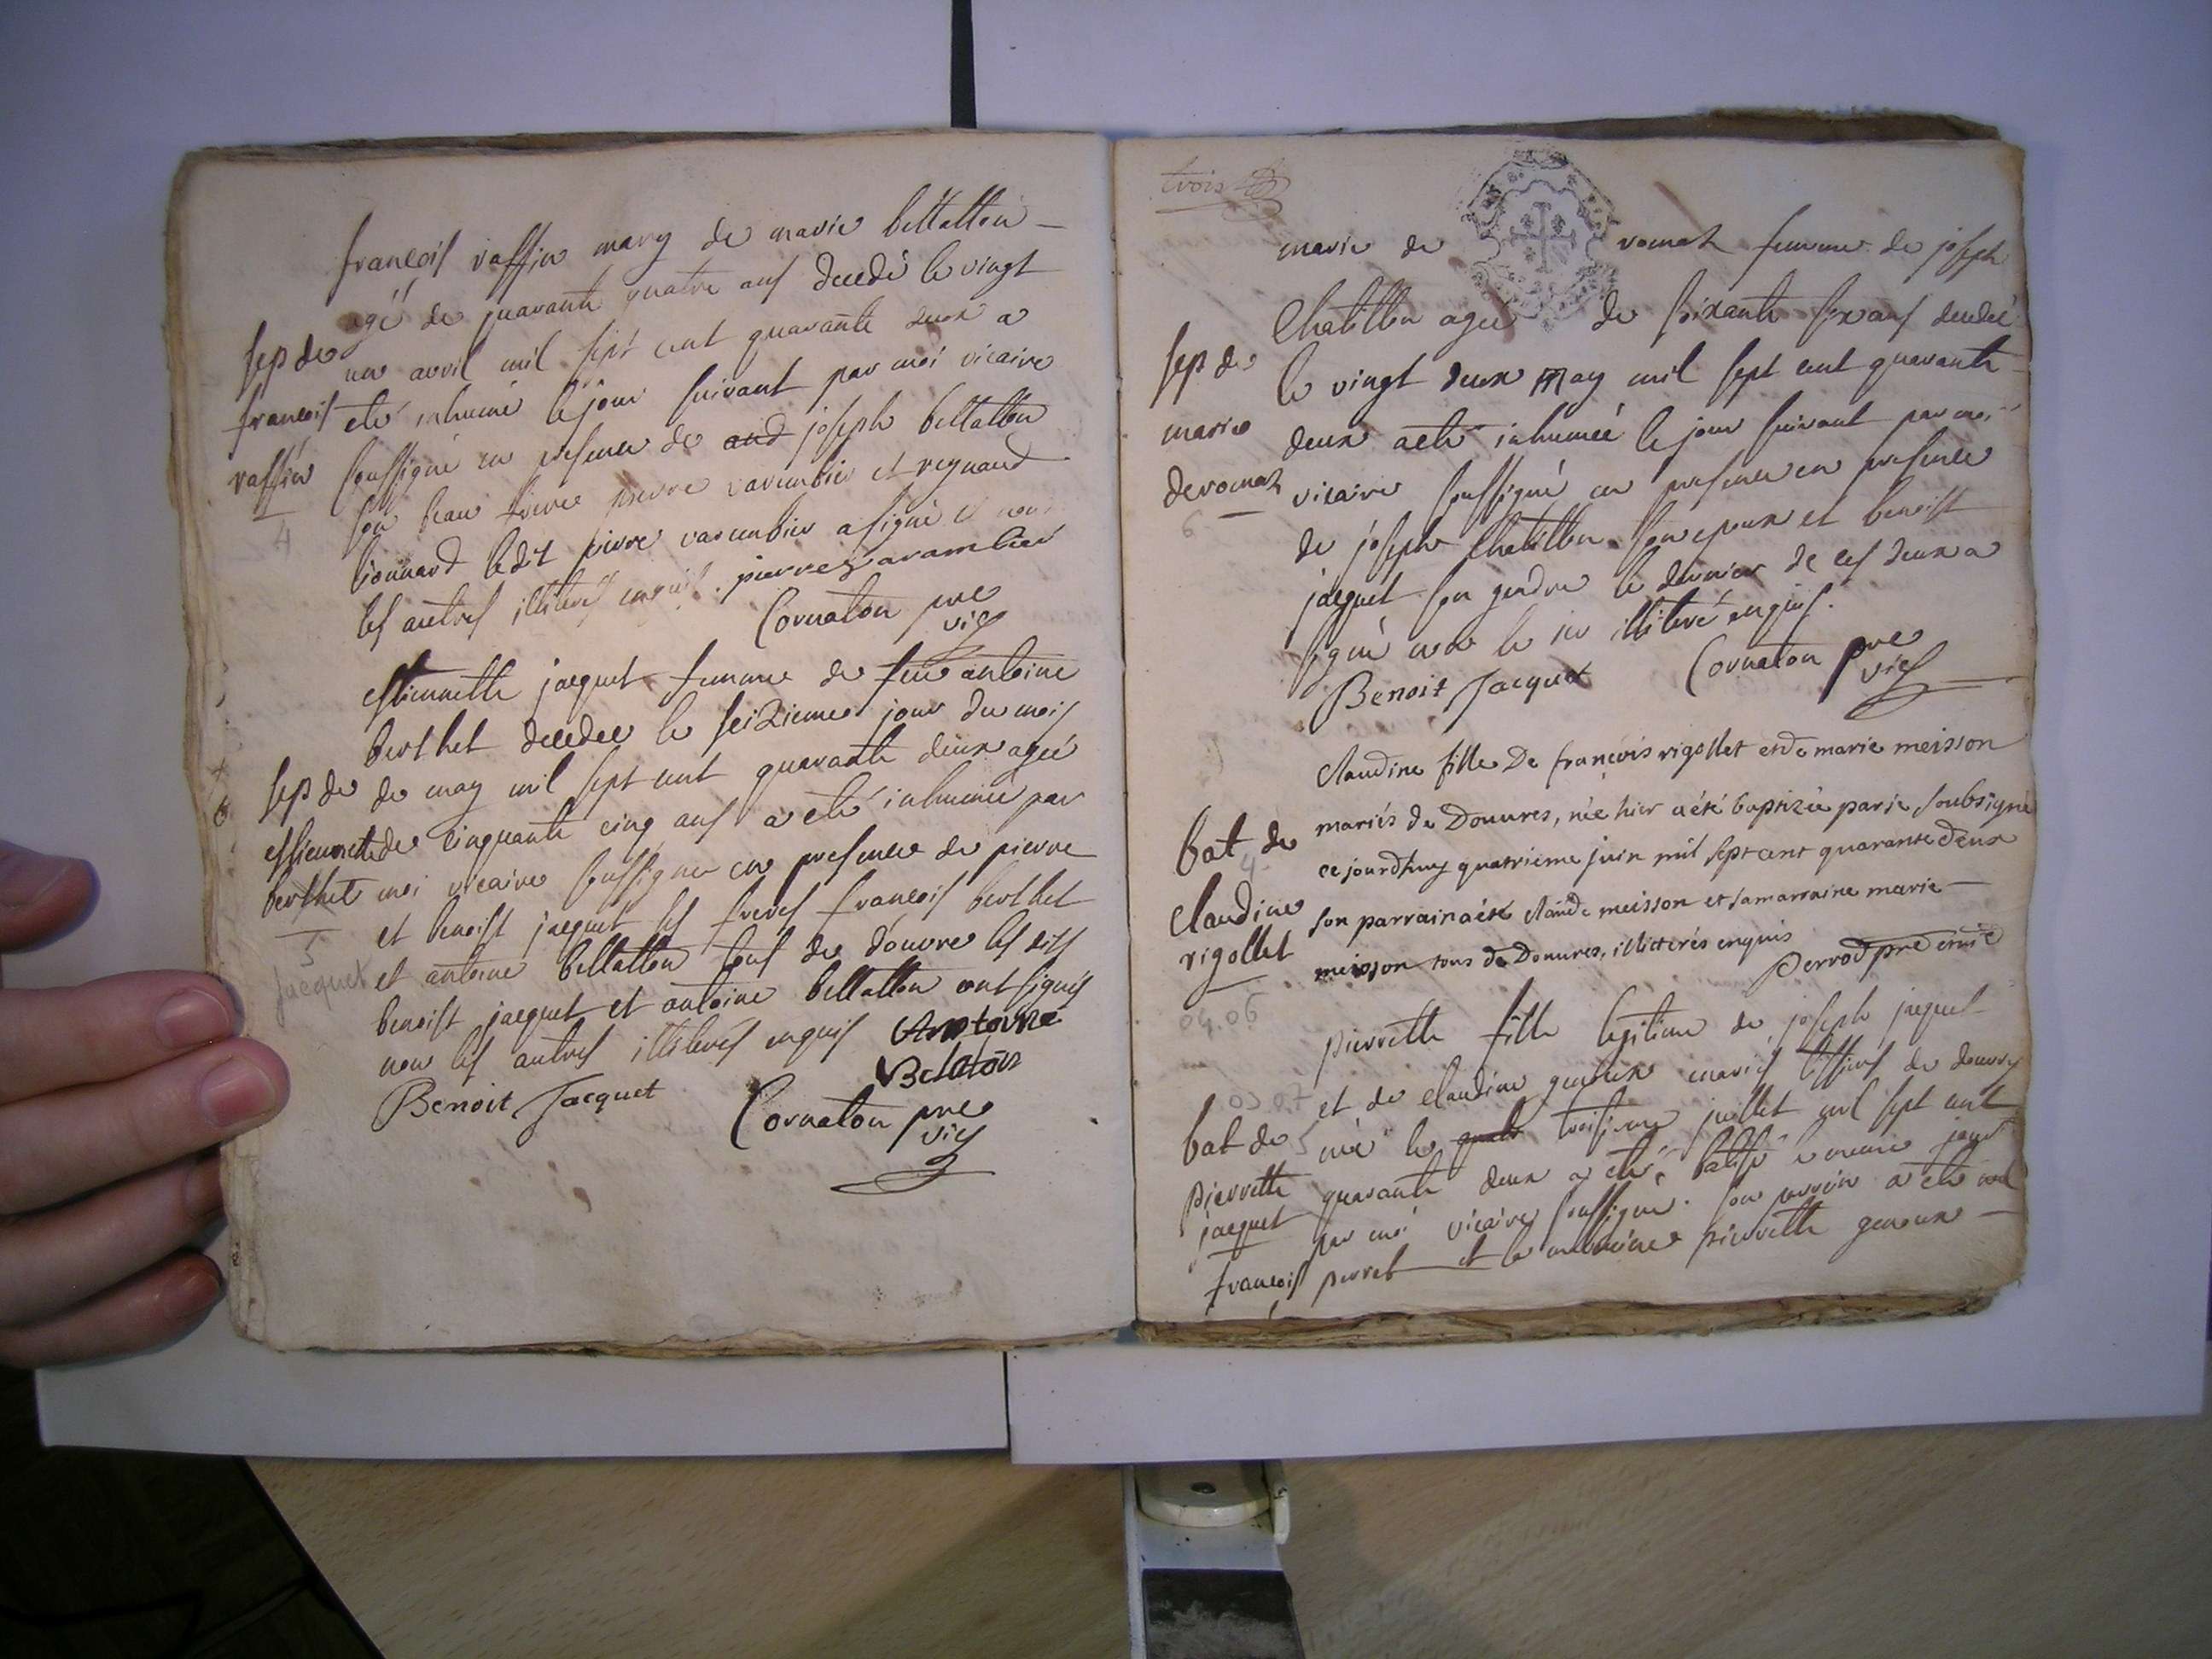 françois raffin mary de marie bellatton
agé de quarante quatre ans decedé le vingt
un avril mil sept cent quarante deux a
eté inhumé le jour suivant par moi vicaire
soussigné en presence de and joseph bellatton
son beau frere pierre varambier et reynaud
bonnard ledit pierre varambier a signé et non
les autres illiterés enquis. pierre varambier
Cornaton pre
vic
sep de
francois
raffin
4
estiennette jacquet femme de feu antoine
berthet decedee le seizieme jour du mois
de may mil sept cent quarante deux agée
de cinquante cinq ans a eté inhumée par
moi vicaire soussigné en presence de pierre
et benoist jacquet ses freres francois berthet
et antoine bellatton tous de douvre les dits
benoist jacquet et antoine bellatton ont signés
non les autres illiterés enquis Antoine
Belaton
Benoit Jacquet
Cornaton pre
vic
sep de
estiennette
berthet
5
jacquet
trois
marie de romat femme de joseph
Chatillon agée de soixante six ans decedée
le vingt deux may mil sept cent quarante
deux a eté inhumée le jour suivant par moi
vicaire soussigné en presence en presence
de joseph Chatillon son epoux et benoist
jacquet son gendre le dernier de ces deux a
signé non le 1er illiteré enquis.
Benoit Jacquet
Cornaton pre
vic
sep de
marie
deromat
6
Claudine fille De françois rigollet et de marie meisson
mariés de Douvres, née hier a été baptizée par je soubsigné
ce jourdhuy quatrieme juin mil sept cent quarante deux
son parrain a été claude meisson et sa marraine marie
meisson tous de Douvres, illitterés enquis
Perrod pre
bat de
4
Claudine
rigollet
04.06
pierrette fille legitime de joseph jaquet
et de claudine genoux mariés de douvres
née le troisieme juillet mil sept cent
quarante deux a eté batisé le meme jour
par moi vicaire soussigné. son parrin a eté
francois perret et la marreine pierrette genoux
03.07
bat de 5
pierrette
jacquet